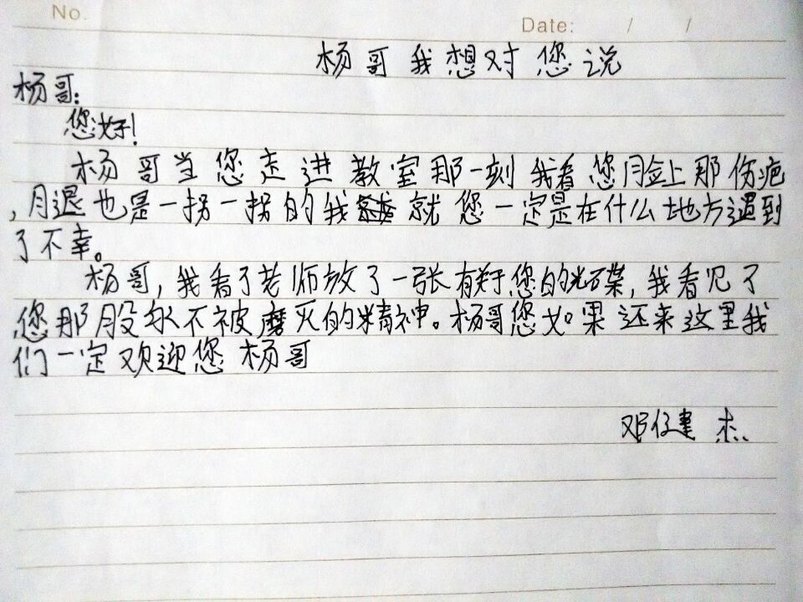 No.
Date: / /
杨哥我想对您说
杨哥:
您好!
杨哥当您走进教室那一刻我看您脸上那伤疤
,腿也是一拐一拐的我就您一定是在什么地方遇到
了不幸。
杨哥,我看了老师放了一张有关于您的光碟,我看见了
您那股永不被磨灭的精神。杨哥您如果还来这里我
们一定欢迎您杨哥
邓健杰